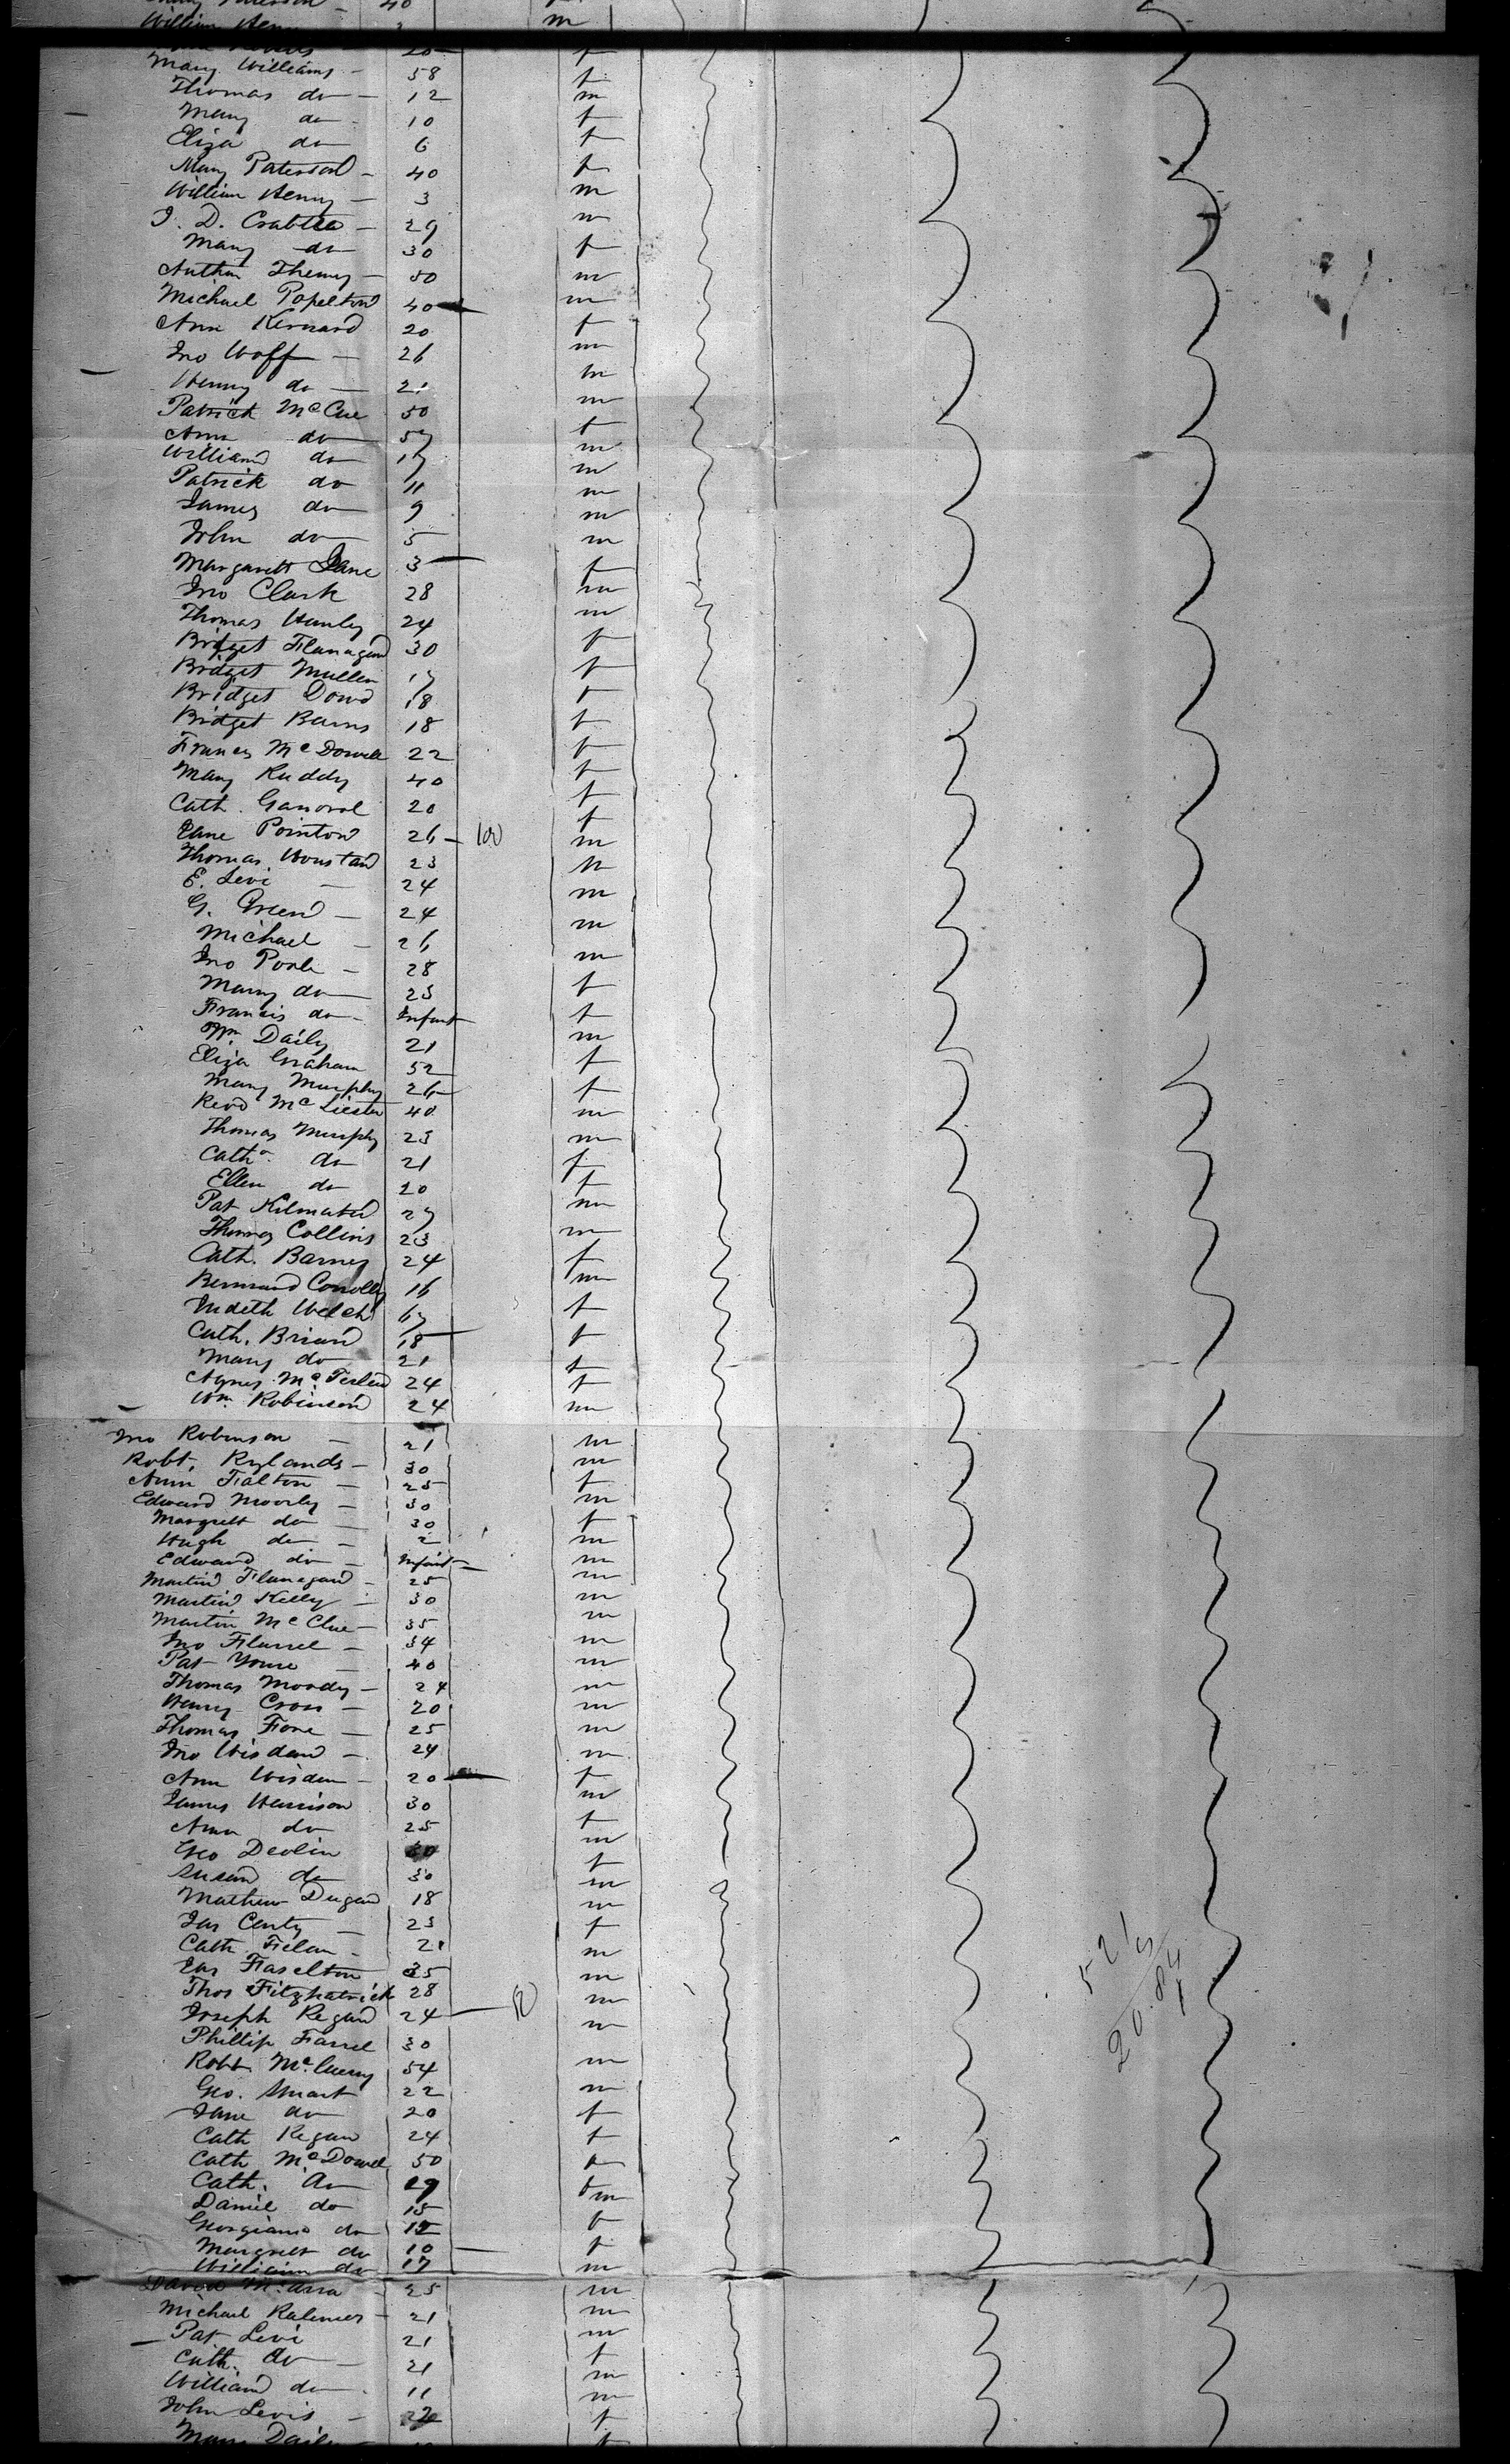 William Henry m
Mary Williams - 58 f
Thomas do - 12 m
Mary do - 10 f
Eliza do 6 f
Mary Paterson - 40 f
William Henry - 3 m
J. D. Crabtree - 29 m
Mary do 30 f
50 m
Michael Popelton 40 m
Ann Kernard 20 f
Jno Woff - 26 m
Henry do - 21 m
Patrick McCue 50 m
Ann do 57 f
William do 17 m
Patrick do 11 m
James do 9 m
John do 5 m
Margarett Jane 3 f
Jno Clark 28 m
Thomas Hanley 24 m
Bridget Flanagan 30 f
Bridget Mullen 17 f
Bridget Dowd 18 f
Bridget Barns 18 f
Frances McDowell 22 f
Mary Ruddy 40 f
Cath. 20 f
Jane Pointon 26 - 100 f
Thomas 23 m
E. Levi - 24 m
G. Green - 24 m
Michael - 26 m
Jno Poole - 28 m
Mary do 25 f
Francis do - Infant f
Wm Daily 21 m
Eliza Graham 52 f
Mary Murphy 26 f
Revd Mc 40 m
Thomas Murphy 23 m
Cath do 21 f
Ellen do 20 f
Pat 27 m
Thomas Collins 23 m
Cath. Barnes 24 f
Bernard Conolly 16 m
Judith Welch 67 f
Cath. Brian 18 f
Mary do 21 f
Agnes 24 f
Wm Robinson 24 m
Jno Robinson - 21 m
Robt. Rylands - 30 m
Ann Falton - 25 f
Edward Moorly - 30 m
Margrett do - 30 f
Hugh do - 2 m
Edward do - Infant m
Martin Flanagan - 25 m
Martin Kelly - 30 m
Martin McClue - 35 m
Jno - 34 m
Pat - 40 m
Thomas Moody - 24 m
Henry Cross - 20 m
Thomas Fore - 25 m
Jno Wisdam - 24 m
Ann Wisdam - 20 f
James Harrison 30 m
Ann do 25 f
Geo Devlin 30 m
Susan do 30 f
Mathew Dugan 18 m
Jas - 23 m
Cath - 21 f
Haselton 35 m
Thos Fitzhatrick 28 m
Joseph Regan 24 - m
Phillip Farrel 30 m
Robt 54 m
Geo. Smart 22 m
Jane do 20 f
Cath Regan 24 f
Cath McDowel 50 f
Cath. do 19 f
Daniel do 15 m
Georgiana do 12 f
Margrett do 10 f
William do 17 m
David 25 m
Michael - 21 m
Pat Levi 21 m
Cath. do - 21 f
William do - 11 m
John Levis - 22 m
f
521
20.84